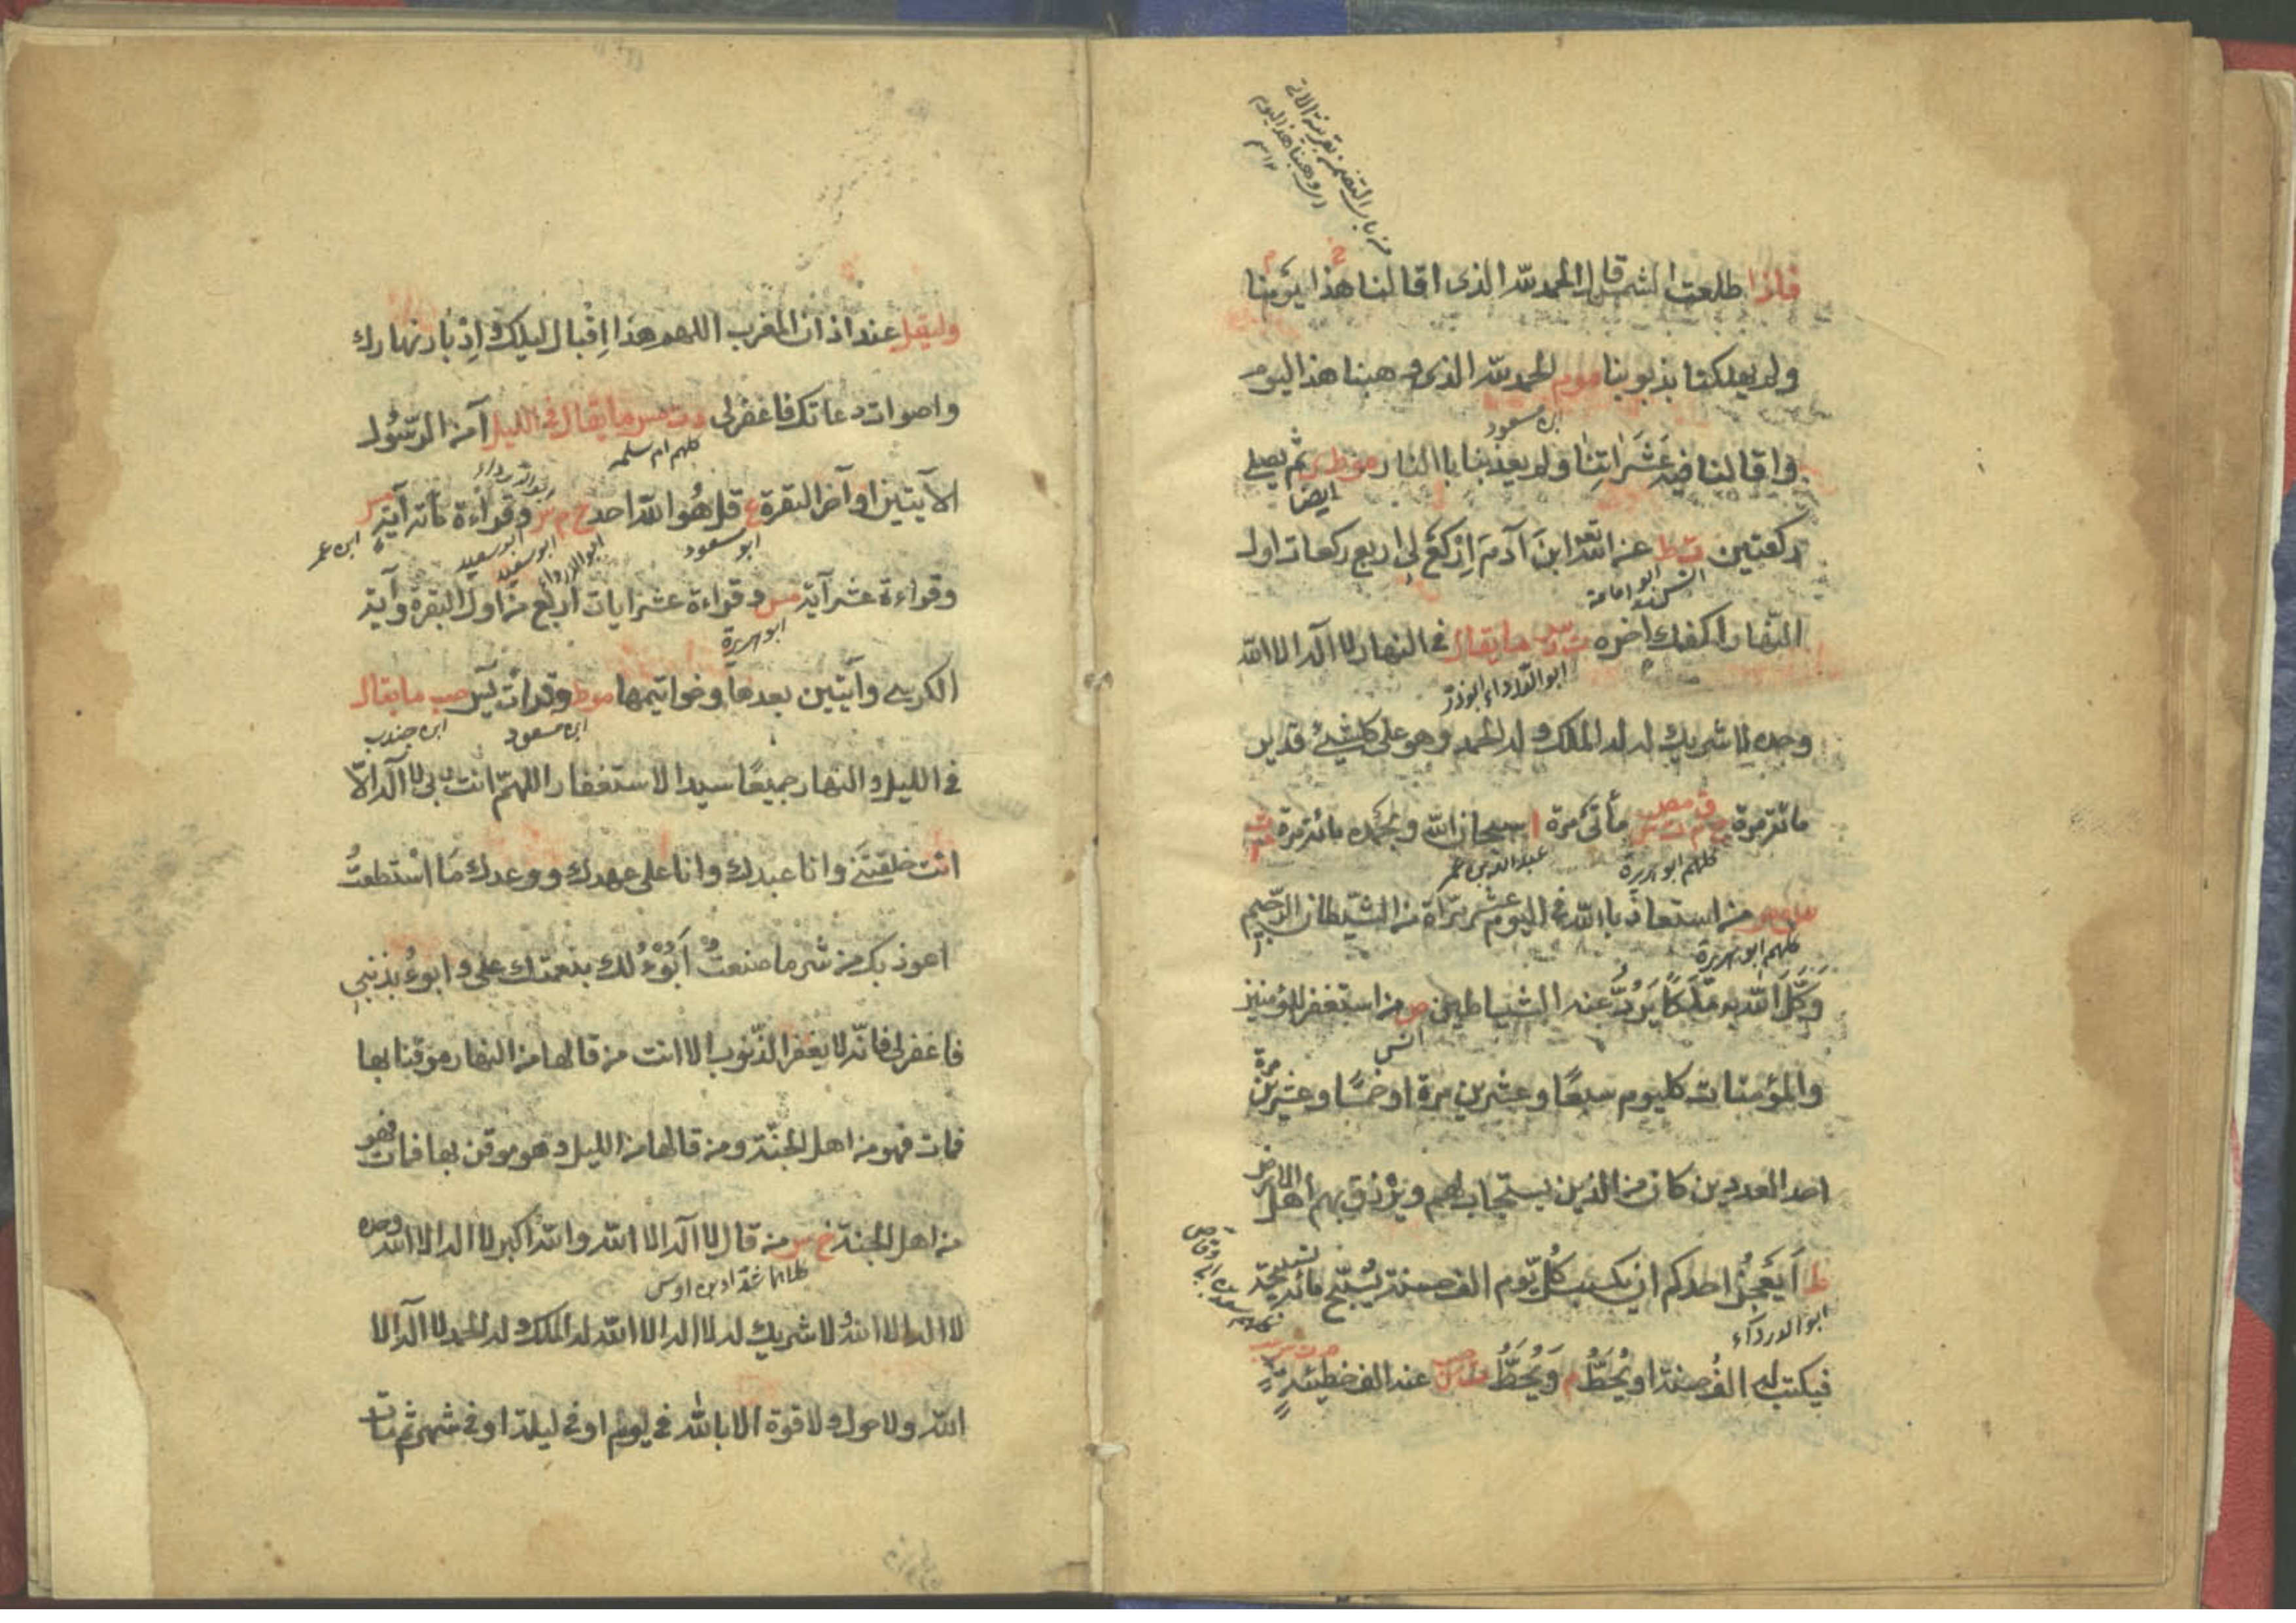 فاذا طلعت الشمس قال الحمد لله الذى اقالنا هذا يومنا
ولم يهلكنا بذنوبنا موم الحمد لله الذى وهبنا هذا اليوم
واقالنا فيه عثراتنا ولم يعذبنا بالنار موط ى ثم يصلى
ابن مسعود
ايضا
ركعتين ت ط عن الله تعالى ابن آدم اركع لى اربع ركعات اول
النهار اكفك اخره ت د س ما يقال فى النهار لا اله الا الله
ابو الدرداء ابو ذر
وحده لا شريك له له الملك وله الحمد وهو على كل شئ قدير
مائة مرة خ م ت س ق مص مأتى مرة ا سبحان الله وبحمده مائة مرة
كلهم ابو هريرة
عبد الله بن عمر
من استعاذ بالله فى اليوم عشر مرات من الشيطان الرجيم
كلهم ابو هريرة
وَكَّلَ الله به مَلَكًا يَرُدُّ عنه الشياطين ص من استغفر للمؤمنين
انس
والمؤمنات كل يوم سبعًا وعشرين مرة او خمسًا وعشرين مرة
احد العددين كان من الذين يستجاب لهم ويرزق بهم اهل الارض
ط أيعجز احدكم ان يكسب كل يوم الف حسنة يسبح مائة تسبيحة
ابو الدرداء
فيكتب له الف حسنة او يُحَطُّ م وَيُحَطُّ ت س حب عنه الف خطيئة
وليقل عند اذان المغرب اللهم هذا اقبال ليلك وادبار نهارك
واصوات دعاتك فاغفر لى د ت مس ما يقال فى الليل آمن الرسول
كلهم ام سلمه
الآيتين اواخر البقرة ع قل هو الله احد خ م س وقراءة مائة آية مس
ابو مسعود
ابو الدرداء
ابو سعيد
ابن عمر
وقراءة عشر آية مس وقراءة عشر ايات اربع من اول البقرة وآية
ابو هريرة
الكرسى وآيتين بعدها وخواتيمها موط وقراءت يس حب ما يقال
ابن مسعود
ابن جندب
فى الليل والنهار جميعًا سيد الاستغفار اللهم انت ربى لا اله الا
انت خلقتنى وانا عبدك وانا على عهدك ووعدك ما استطعت
اعوذ بك من شر ما صنعت أبوء لك بنعمتك على وابوء بذنبى
فاغفر لى فانه لا يغفر الذنوب الا انت من قالها من النهار موقنا بها
فمات فهو من اهل الجنة ومن قالها من الليل وهو موقن بها فمات فهو
من اهل الجنة خ س من قال لا اله الا الله والله اكبر لا اله الا الله وحده
كلاهما شداد بن اوس
لا اله الا الله لا شريك له لا اله الا الله له الملك وله الحمد لا اله الا
الله ولا حول ولا قوة الا بالله فى يوم او فى ليلة او فى شهر ثم مات